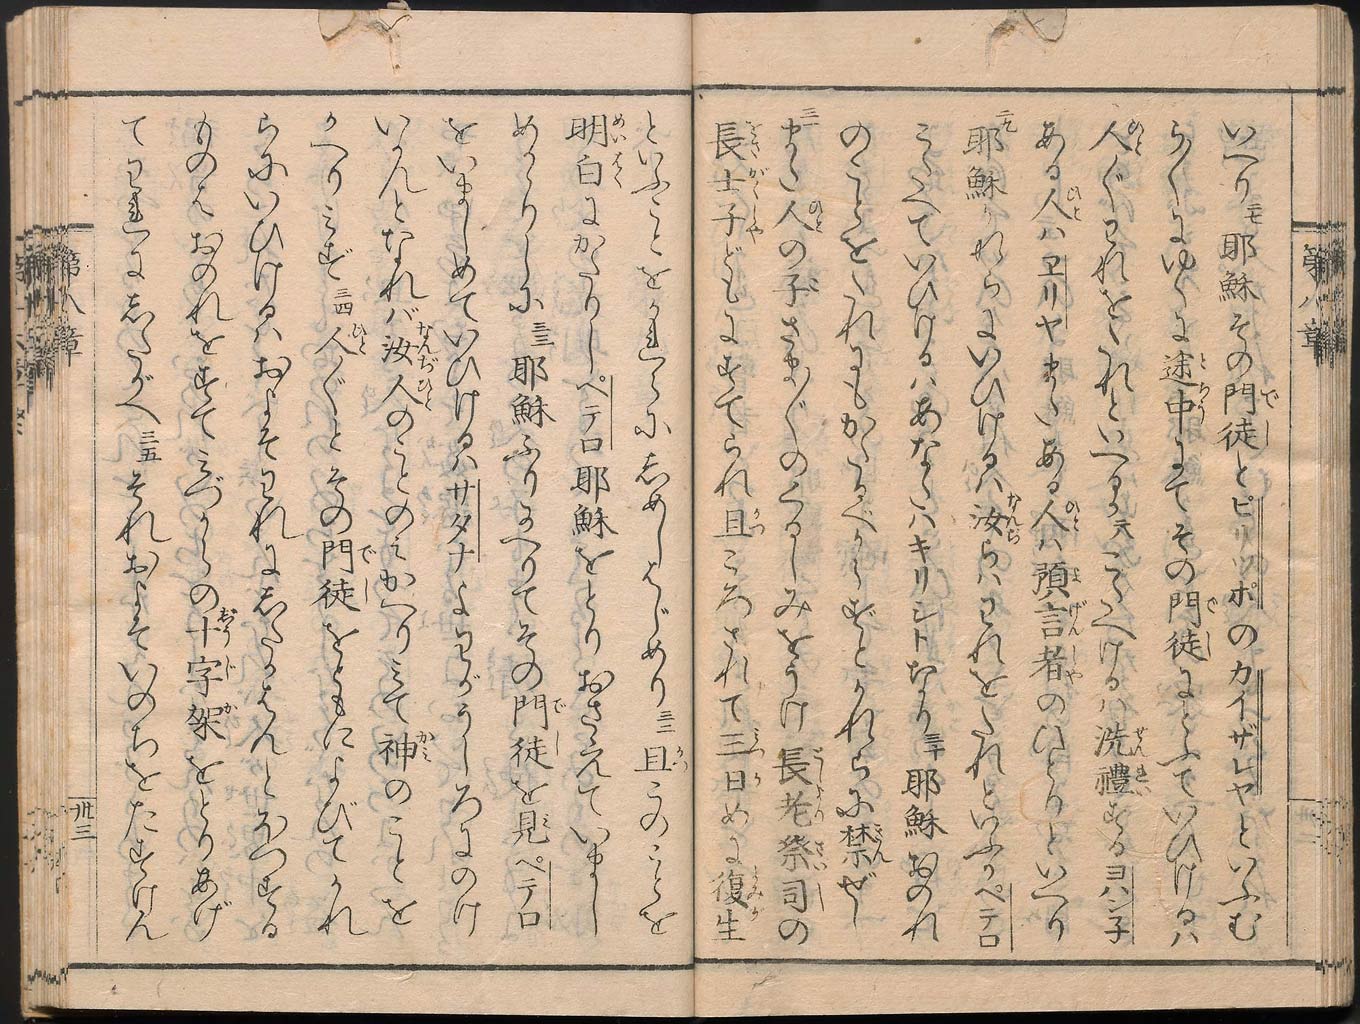 いへり 二七 耶穌その門徒とピリッポのカイザレヤといふむ
ら〳〵にゆくに途中にてその門徒にとふていひけるハ
人〴〵われをたれといへるか 二八 こたへけるハ洗禮するヨハン子
ある人ハヱリヤまたある人ハ預言者のひとりといへり
二九 耶穌かれらにいひけるハ汝らハわれをたれといふかペテロ
こたへていひけるハあなたハキリシトなり 三十 耶穌おのれ
のことをたれにもかたるべからずとかれらに禁ぜし
三一 また人の子さま〴〵のくるしみをうけ長老祭司の
長士子どもにすてられ且ころされて三日めに復生
といふことをかれらにしめしはじめり 三二 且このことを
明白にかたりしペテロ耶穌をとりおさえていまし
めかゝりしに 三三 耶穌ふりかへりてその門徒を見ペテロ
をいましめていひけるハサタナよわがうしろにのけ
いかんとなれバ汝人のことのみかへりミて神のことを
かへりミず 三四 人〴〵とその門徒をともによびてかれ
らにいひけるハおよそわれにしたがはんとおもつする
ものはおのれをすてミづからの十字架をとりあげ
てわれにしたがへ 三五 それおよそいのちをたすけん
第八章
第八章
卅三